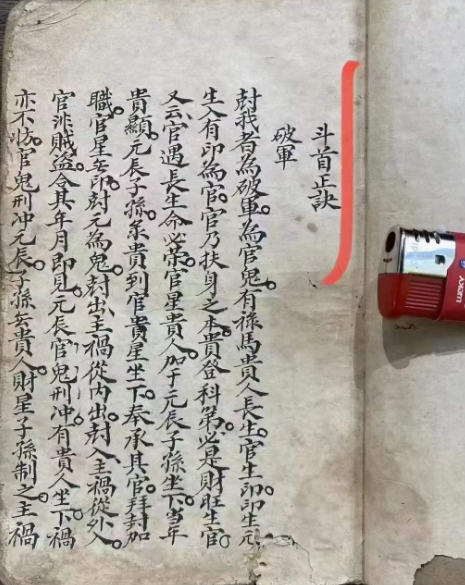 斗首正訣
破軍
尅我者為破軍為官鬼。有祿馬貴人長生官生印印生元
生入有印為官。官乃扶身之本。貴登科第。必是財旺生官。
又云官遇長生命必榮。官星貴人加于元辰子孫坐下。當年
貴顯。元辰子孫系貴到官貴星坐下。奉承其官拜封加
職。官星無印尅元為鬼。尅出主禍從內出。尅入主禍從外入。
官非賊盜。令其年月即見。元辰官鬼刑冲。有貴人坐下禍
亦不妨。官鬼刑冲元辰。子孫無貴人財星子孫制之。主禍
AXIOM